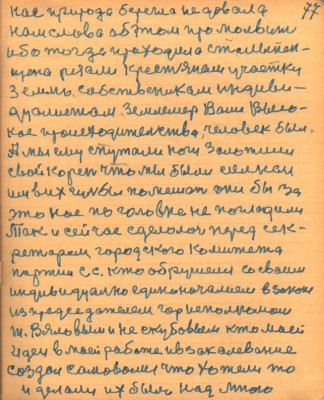 нас природа берегла не довала 77
нам слова об этом промолвит
ибо тогда проходила столытен-
щена резали крестянам участки
земли, собственикам индиви-
дуалистам. Землемер Ваше Высо-
кое происходителства, человек был.
А мы ему спутали ноги заложили
свой корен что мы были
им помешат они бы за
это нас по головке не погладили
Так и сейчас сделолос перед сек-
ретарем городского Комитета
партии с.с. кто обрушелся со своим
индивидуално единоначалием в закон
из председателем горисполкомом
т. Вяловым и не скубовым кто моей
идеи в моей работе и в закалевание
создал самоволия что хотели то
и делали их было над много